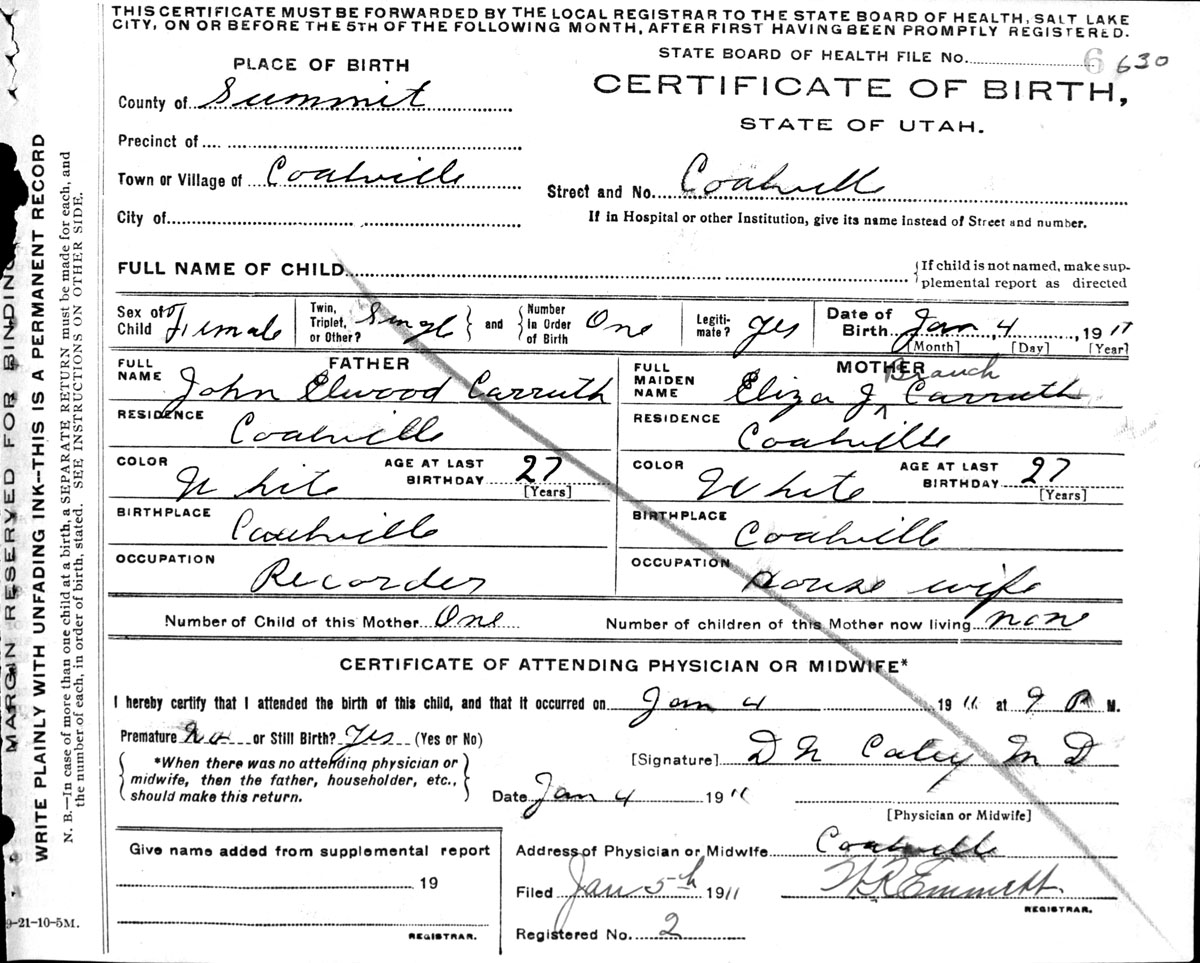 THIS CERTIFICATE MUST BE FORWARDED BY THE LOCAL REGISTRAR TO THE STATE BOARD OF HEALTH, SALT LAKE
CITY, ON OR BEFORE THE 5TH OF THE FOLLOWING MONTH, AFTER FIRST HAVING BEEN PROMPTLY REGISTERED.
STATE BOARD OF HEALTH FILE No. 6 630
PLACE OF BIRTH
CERTIFICATE OF BIRTH,
STATE OF UTAH.
County of Summit
Precinct of
Town or Village of Coalville
Street and No. Coalville
City of
If in Hospital or other Institution, give its name instead of Street and number.
FULL NAME OF CHILD
{If child is not named, make sup-
plemental report as directed
Sex of Child Female
Twin, Triplet, or Other? Single } and { Number in Order of Birth One
Legiti-mate? Yes
Date of Birth Jan 4, 1911
[Month] [Day] [Year]
FATHER
FULL NAME John Elwood Carruth
RESIDENCE Coalville
COLOR White AGE AT LAST BIRTHDAY 27
[Years]
BIRTHPLACE Coalville
OCCUPATION Recorder
MOTHER
Branch
FULL MAIDEN NAME Eliza J ^ Carruth
RESIDENCE Coalville
COLOR White AGE AT LAST BIRTHDAY 27
[Years]
BIRTHPLACE Coalville
OCCUPATION House wife
Number of Child of this Mother One
Number of children of this Mother now living non
CERTIFICATE OF ATTENDING PHYSICIAN OR MIDWIFE*
I hereby certify that I attended the birth of this child, and that it occurred on Jan 4 1911 at 9 P M.
Premature No or Still Birth? Yes (Yes or No)
{*When there was no attending physician or
midwife, then the father, householder, etc.,
should make this return.
[Signature] D N Caley M D
Date Jan 4 1911
[Physician or Midwife]
Give name added from supplemental report
19
REGISTRAR.
Address of Physician or Midwife Coalville
Filed Jan 5th 1911 W R Emmett
REGISTRAR.
Registered No. 2
MARGIN RESERVED FOR BINDING
WRITE PLAINLY WITH UNFADING INK--THIS IS A PERMANENT RECORD
N. B.—In case of more than one child at a birth, a SEPARATE RETURN must be made for each, and
the number of each, in order of birth, stated. SEE INSTRUCTIONS ON OTHER SIDE.
9-21-10-5M.